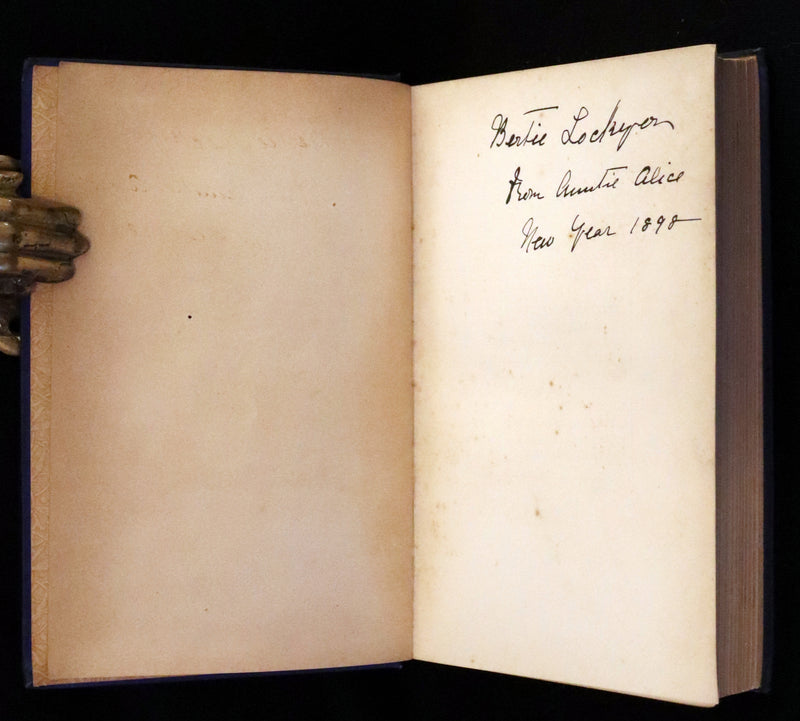 Bertie Lockyer
from Auntie Alice
New Year 1898